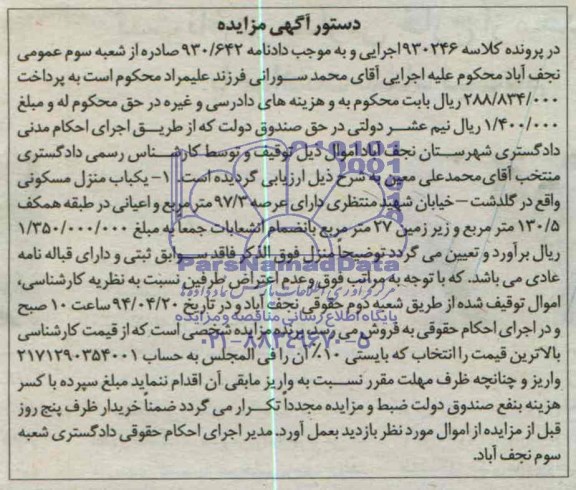 دستور آگهی مزایده
در پرونده کلاسه ۹۳۰۲۴۶ اجرایی و به موجب دادنامه ۹۳۰/۶۴۲ صادره از شعبه سوم عمومی
نجف آباد محکوم علیه اجرایی آقای محمد سورانی فرزند علیمراد محکوم است به پرداخت
۲۸۸/۸۳۴/۰۰۰ ریال بابت محکوم به و هزینه های دادرسی و غیره در حق محکوم له و مبلغ
۱/۴۰۰/۰۰۰ ریال نیم عشر دولتی در حق صندوق دولت که از طریق اجرای احکام مدنی
دادگستری شهرستان نجف آباد اموال ذیل توقیف و توسط کارشناس رسمی دادگستری
منتخب آقای محمدعلی معین به شرح ذیل ارزیابی گردیده است. ۱- یکباب منزل مسکونی
واقع در گلدشت – خیابان شهید منتظری دارای عرصه ۹۷/۳ متر مربع و اعیانی در طبقه همکف
۱۳۰/۵ متر مربع و زیر زمین ۲۷ متر مربع بانضمام انشعابات جمعا به مبلغ ۱/۳۵۰/۰۰۰/۰۰۰
ریال برآورد و تعیین می گردد توضیحاً منزل فوق الذکر فاقد سوابق ثبتی و دارای قباله نامه
عادی می باشد. که با توجه به مراتب فوق و عدم اعتراض طرفین نسبت به نظریه کارشناسی،
اموال توقیف شده از طریق شعبه دوم حقوقی نجف آباد و در تاریخ ۹۴/۰۴/۲۰ ساعت ۱۰ صبح
و در اجرای احکام حقوقی به فروش می رسد، برنده مزایده شخصی است که از قیمت کارشناسی
بالاترین قیمت را انتخاب که بایستی ۱۰٪ آن را فی المجلس به حساب ۲۱۷۱۲۹۰۳۵۴۰۰۱
واریز و چنانچه ظرف مهلت مقرر نسبت به واریز مابقی آن اقدام ننماید مبلغ سپرده با کسر
هزینه بنفع صندوق دولت ضبط و مزایده مجدداً تکرار می گردد ضمناً خریدار ظرف پنج روز
قبل از مزایده از اموال مورد نظر بازدید بعمل آورد. مدیر اجرای احکام حقوقی دادگستری شعبه
سوم نجف آباد.
ParsNamadData
پایگاه اطلاع رسانی مناقصه و مزایده
۰۲۱-۸۸۳۴۹۶۷۰-۵